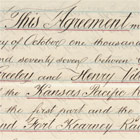 This Agreement
y of October one thousand
nd seventy seven between
and Henry
the Kansas Pacific
the first part and the
and Fort Kearney